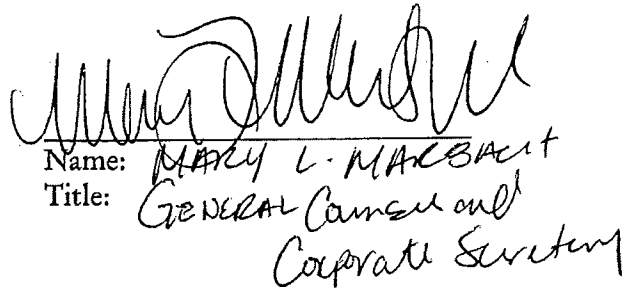 Name: MARY L. MARBACH
Title: GENERAL Counsel and
Corporate Secretary